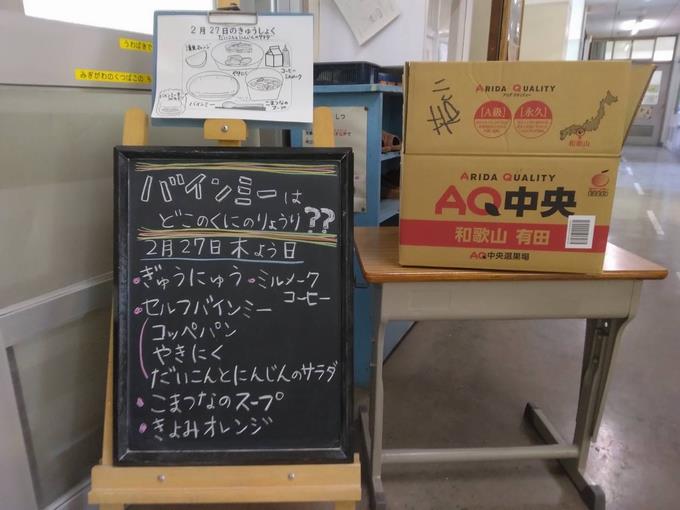 うわばきで
みぎがわのくつばこの
2月27日のきゅうしょく
だいこんとにんじんのサラダ
コーヒー
ミルメーク
やきにく
バインミー
こまつなの
スープ
バインミーは
どこのくにのりょうり??
2月27日木よう日
・ぎゅうにゅう・ミルメーク
コーヒー
・セルフバインミー
コッペパン
やきにく
だいこんとにんじんのサラダ
・こまつなのスープ
・きよみオレンジ
ARIDA QUALITY
[A級]
[永久]
和歌山
ARIDA QUALITY
AQ中央
和歌山 有田
AQ中央選果場